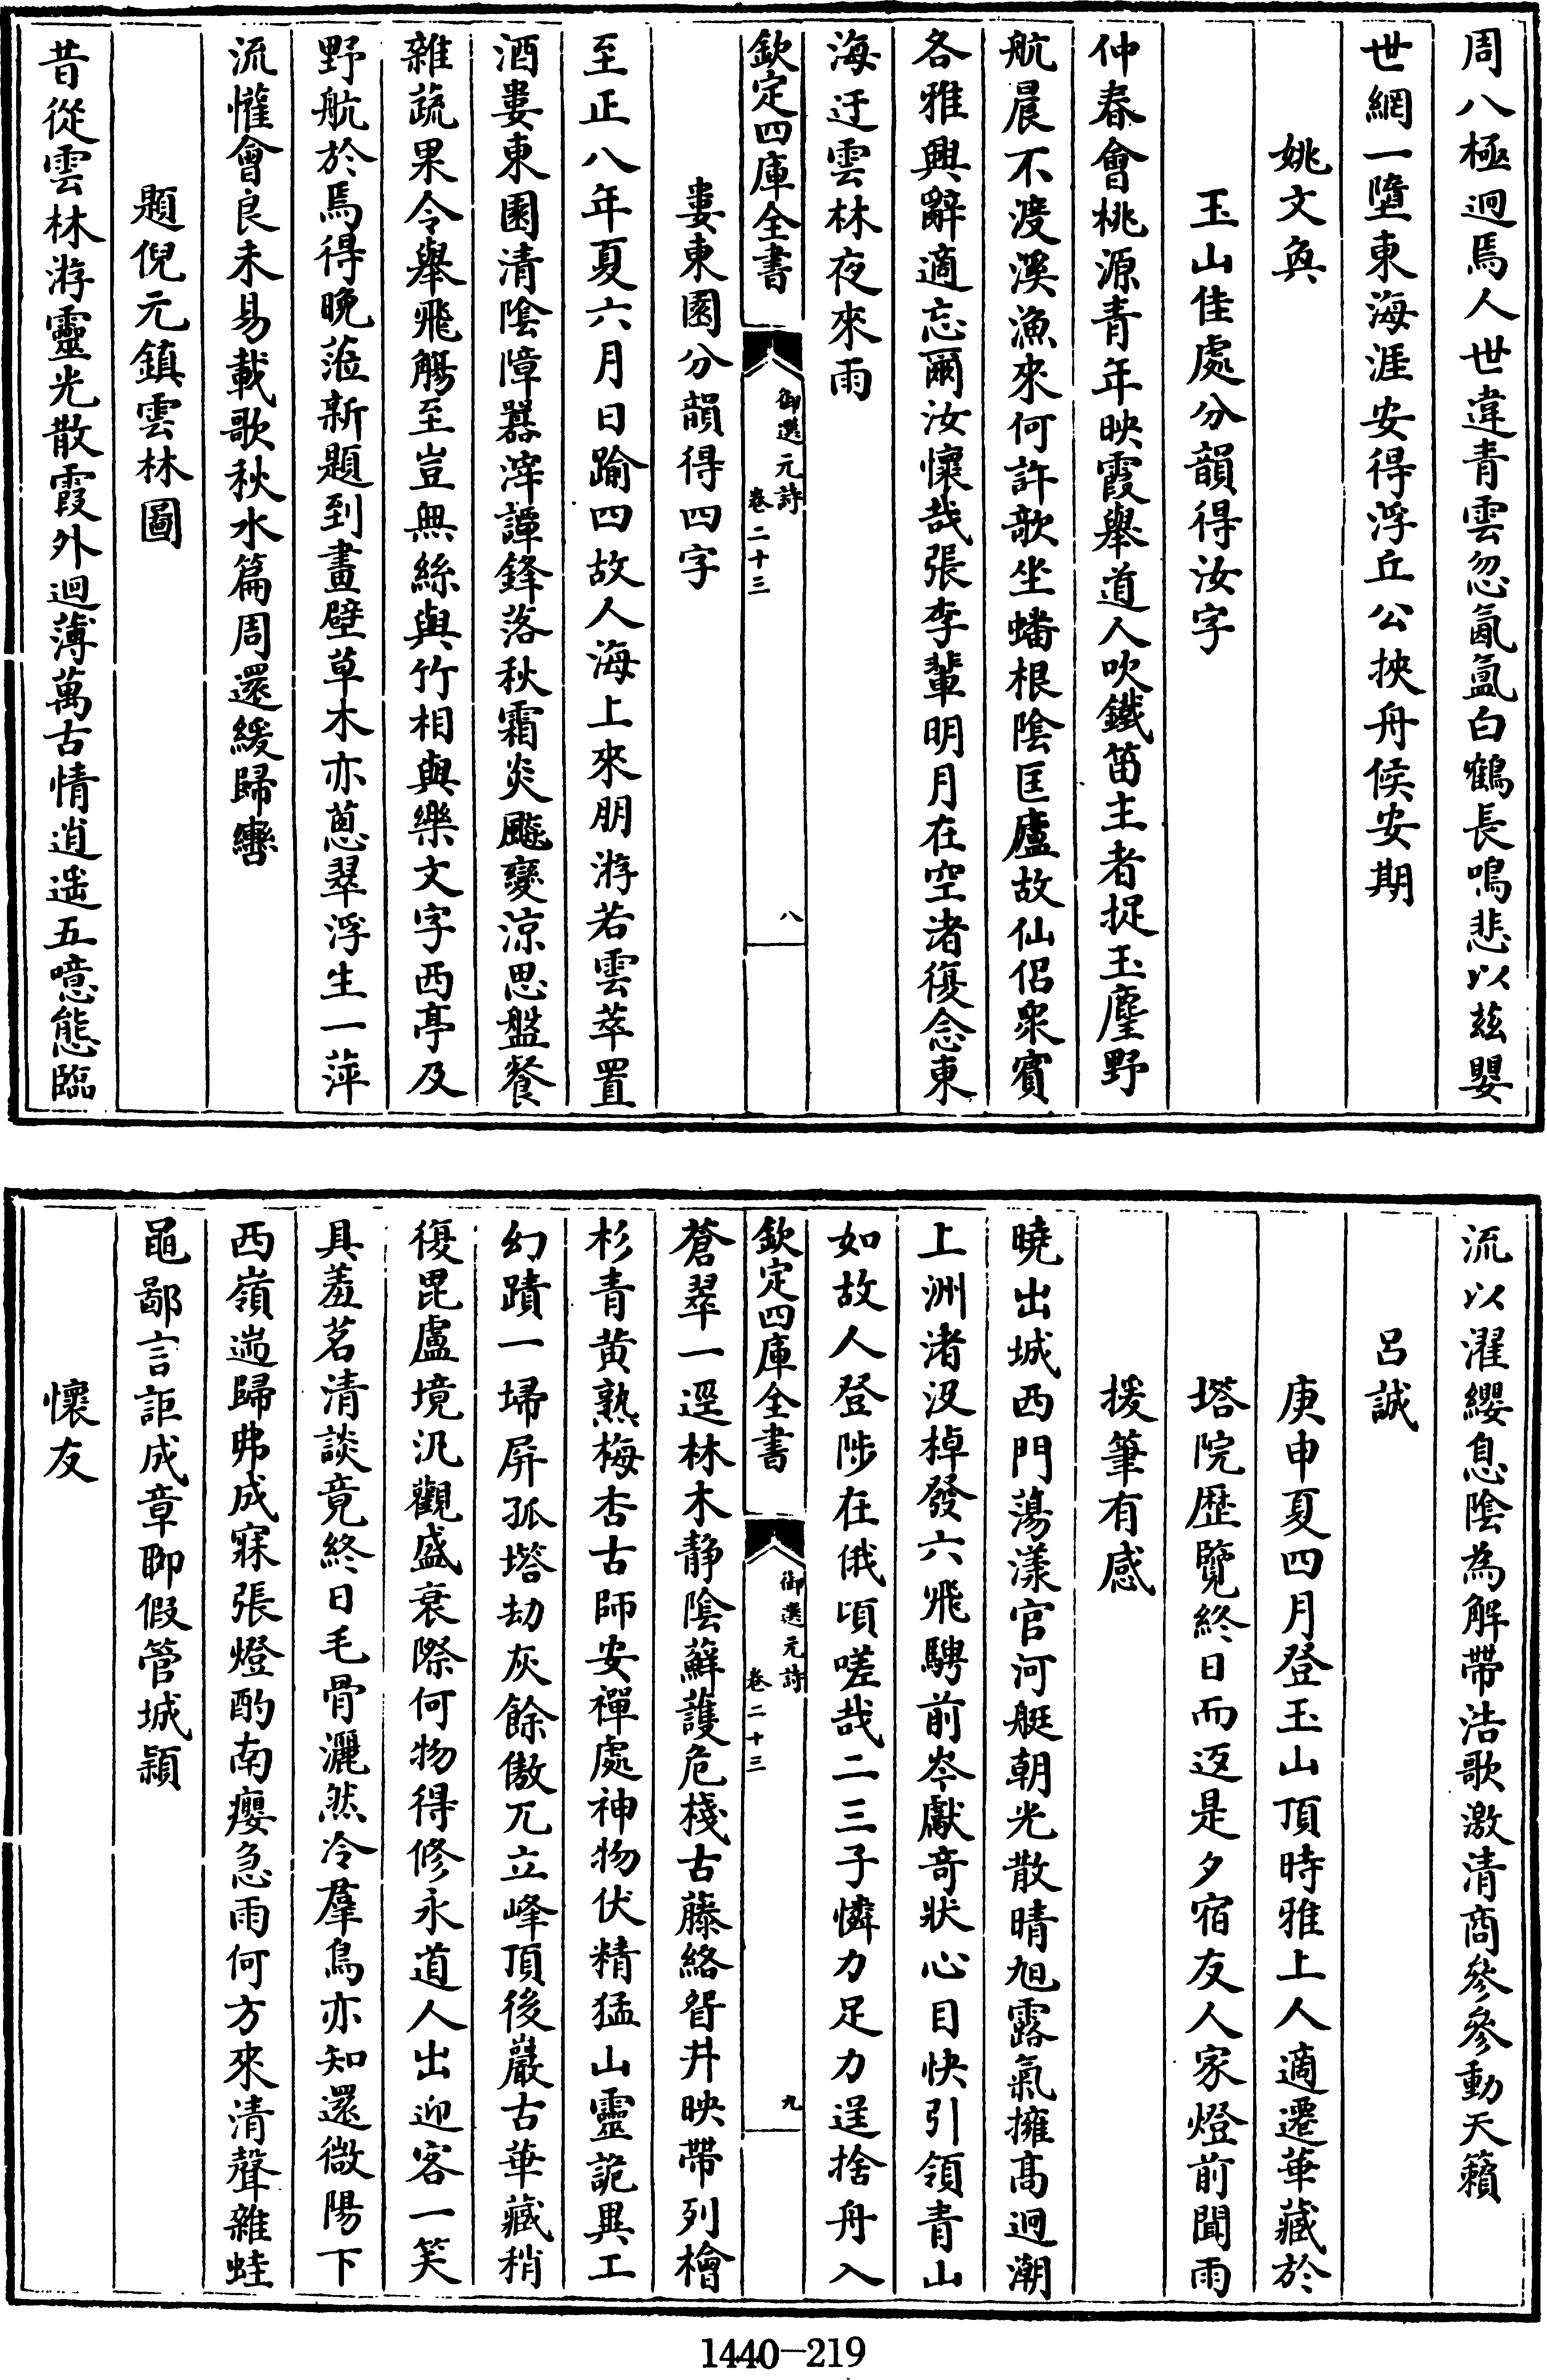 周八極迥焉人世違青雲忽氤氳白鶴長鳴悲以兹嬰
世網一墮東海涯安得浮丘公挾舟候安期
姚文奐
玉山佳處分韻得汝字
仲春會桃源青年映霞舉道人吹鐵笛主者捉玉麈野
航晨不渡溪漁來何許歌坐蟠根陰匡廬故仙侶衆賓
各雅興辭適忘爾汝懷哉張李輩明月在空渚復念東
海迂雲林夜來雨
欽定四庫全書
御選元詩
卷二十三
八
婁東園分韻得四字
至正八年夏六月日踰四故人海上來朋游若雲萃置
酒婁東園清陰障囂滓譚鋒落秋霜炎飈變涼思盤餐
雜蔬果令舉飛觴至豈無絲與竹相與樂文字西亭及
野航於焉得晚蒞新題到畫壁草木亦蔥翠浮生一萍
流懽會良未易載歌秋水篇周還緩歸轡
題倪元鎮雲林圖
昔從雲林游靈光散霞外迴薄萬古情逍遥五噫態臨
流以濯纓息陰為解帶浩歌激清商參參動天籟
呂誠
庚申夏四月登玉山頂時雅上人適遷華藏於
塔院歴覽終日而返是夕宿友人家燈前聞雨
援筆有感
曉出城西門蕩漾官河艇朝光散晴旭露氣擁高迥潮
上洲渚沒棹發六飛騁前岑獻奇狀心目快引領青山
如故人登陟在俄頃嗟哉二三子憐力足力逞捨舟入
欽定四庫全書
御選元詩
卷二十三
九
蒼翠一逕林木静陰蘚護危棧古藤絡眢井映帶列檜
杉青黄熟梅杏古師安禪處神物伏精猛山靈詭異工
幻蹟一埽屏孤塔劫灰餘傲兀立峰頂後巖古華藏稍
復毘盧境汎觀盛衰際何物得修永道人出迎客一笑
具羞茗清談竟終日毛骨灑然冷羣鳥亦知還微陽下
西嶺遄歸弗成寐張燈酌南癭急雨何方來清聲雜蛙
黽鄙言詎成章聊假管城潁
懷友
1440-219